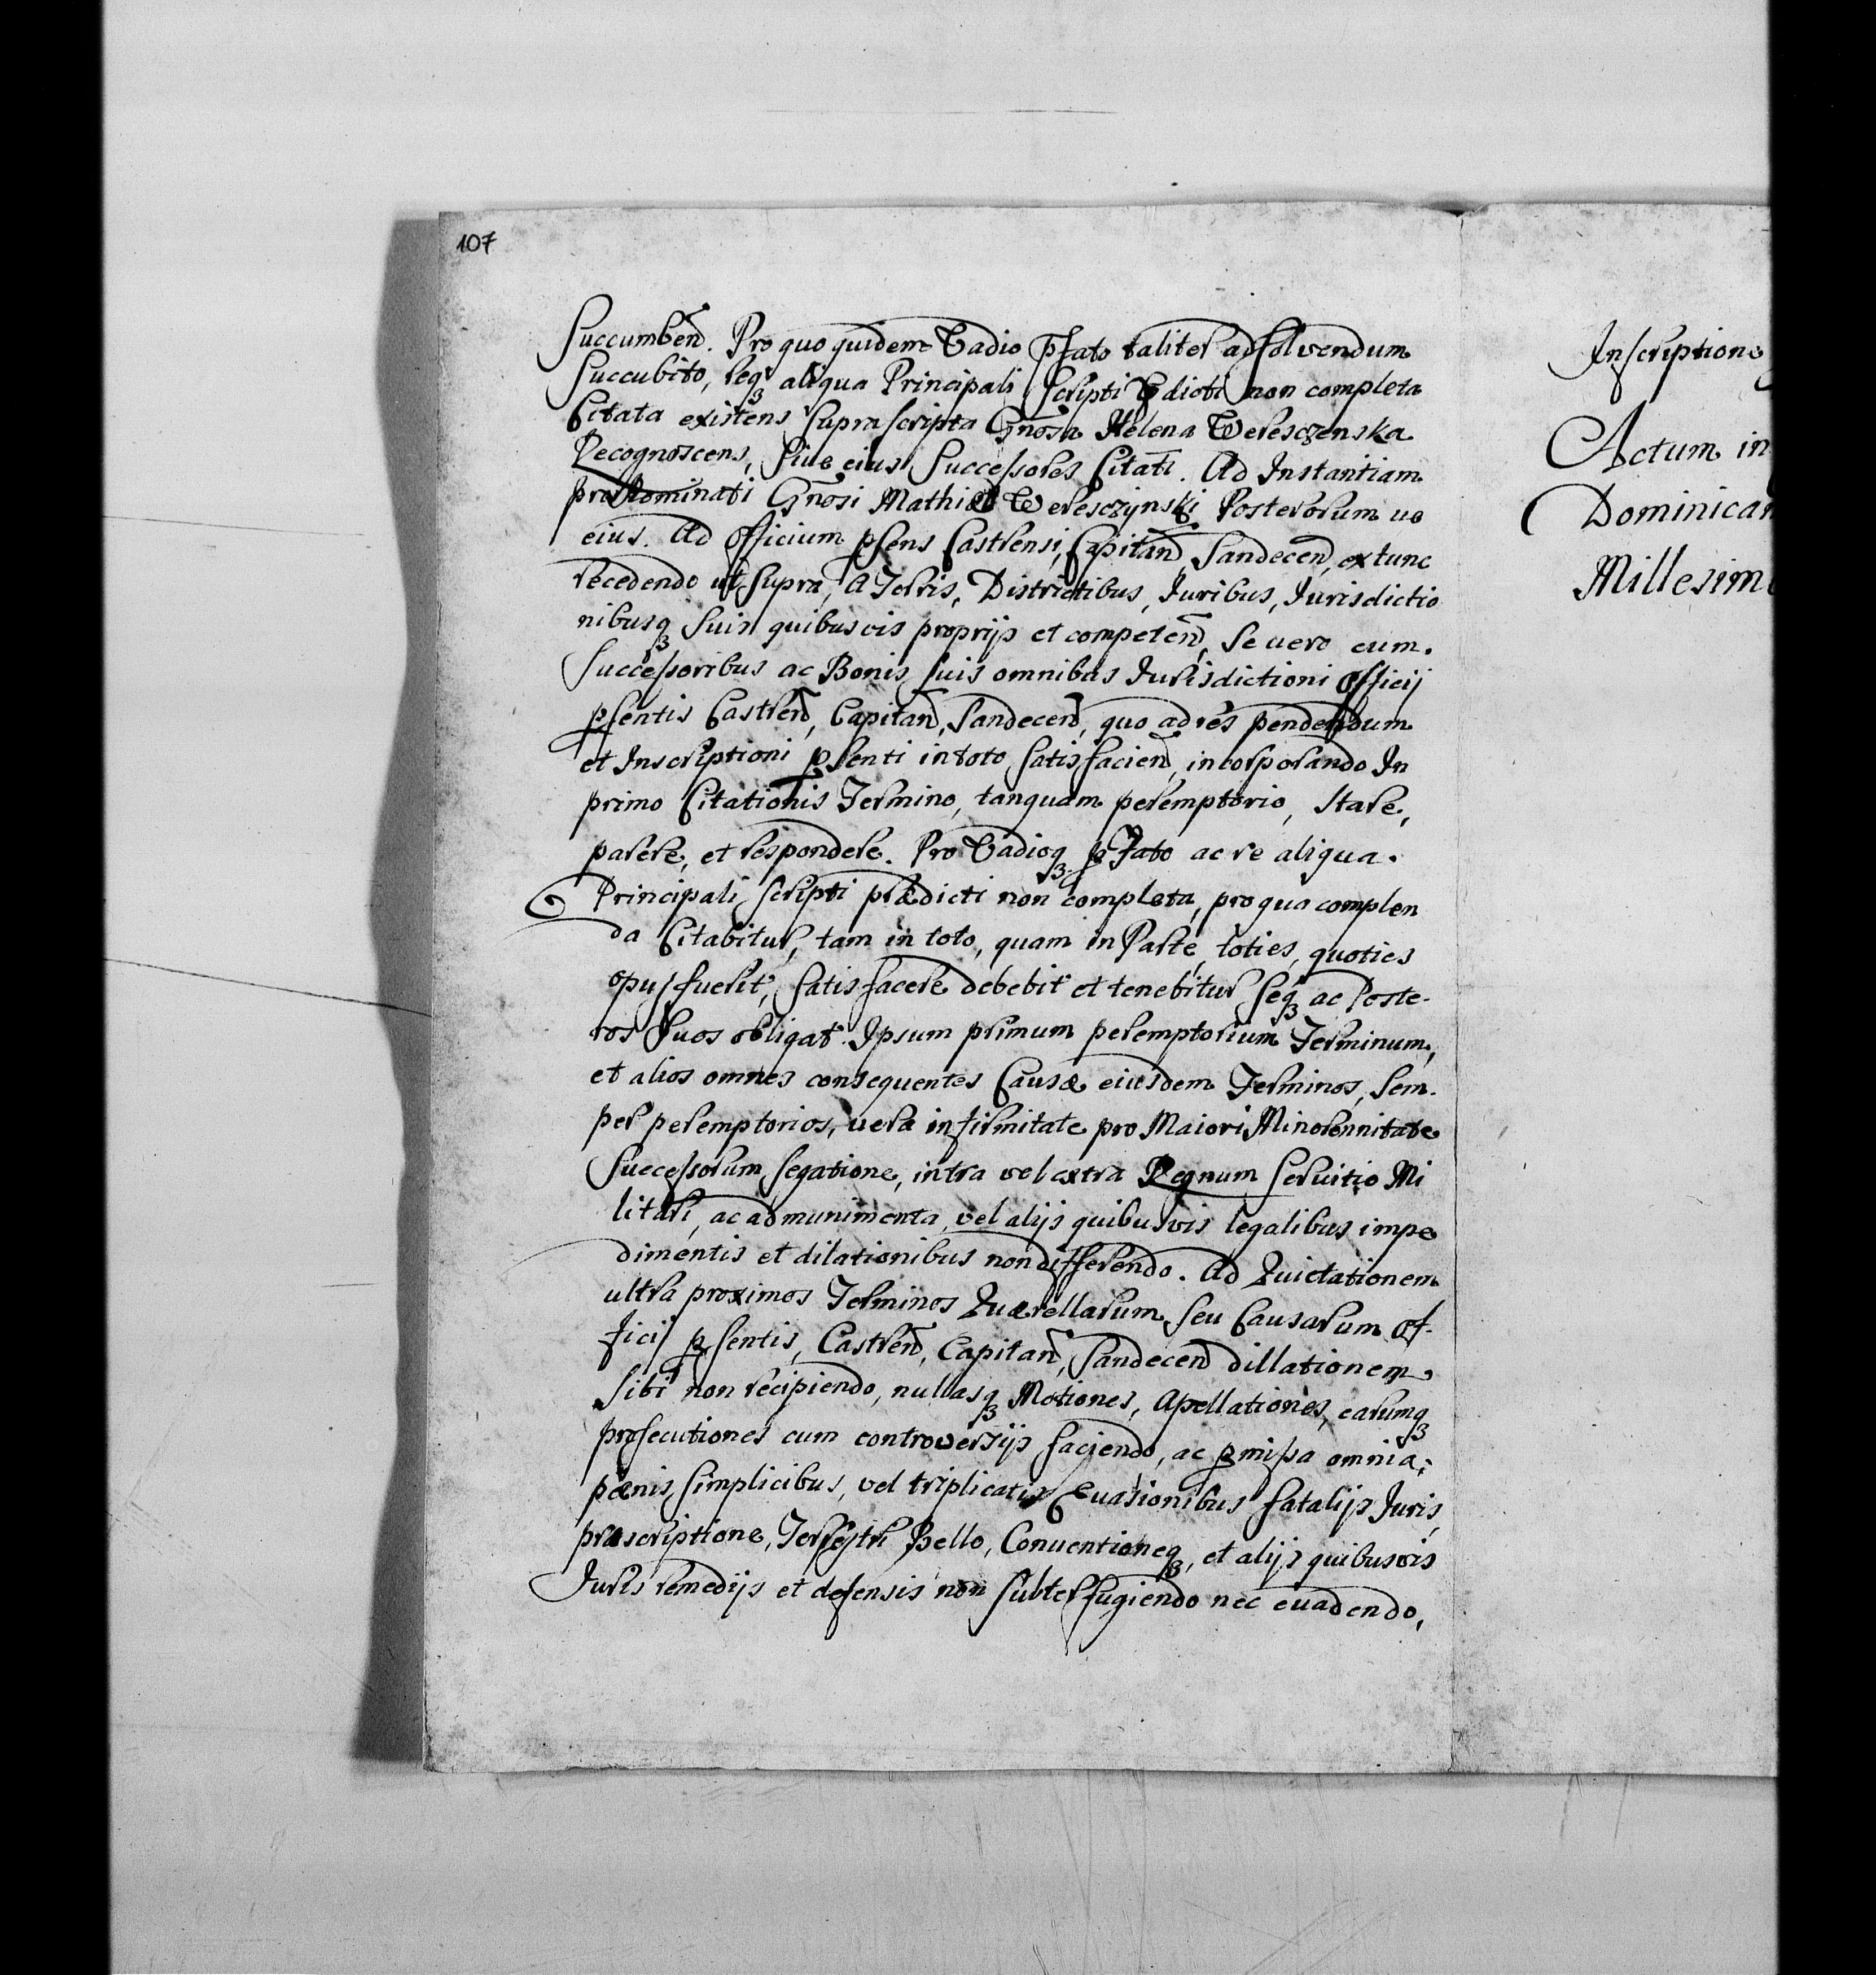 107
Succumbend. Pro quo quidem Vadio pfato taliter adsolvendum
Succubito, reqз aliqua Principali Scripti Edicti non completa
Citata existens supra scripta Gnosa Helena Weresczenska
Recognoscens, sive eius Successores Citati. Ad Instantiam
prænominati Gnosi Mathiæ Weresczynski Posterorum ve
eius. Ad Officium psens Castrensi, Capitan, Sandecen, ex tunc
recedendo ut supra, A Terris, Districtibus, Juribus, Jurisdictio
nibusqз suis quibusvis proprijs et competen, se vero cum
Successoribus ac Bonis suis omnibus Jurisdictioni Officij
psentis Castren, Capitan, Sandecen, quo ad res pendendum
et Inscriptioni psenti in toto satisfacien, incorporando In
primo Citationis Termino, tanquam peremptorio, stare,
parere, et respondere. Pro Vadioqз pfato ac re aliqua
Principali scripti prædicti non completa, pro qua complen
da Citabitur, tam in toto, quam in Parte, toties, quoties
opus fuerit, satisfacere debebit et tenebitur seqз ac Poste-
ros suos obligat. Ipsum primum peremptorium Terminum,
et alios omnes consequentes Causæ eiusdem Terminos, sem-
per peremptorios, vera infirmitate pro Maiori Minorennitate
Successorum legatione, intra vel extra Regnum servitio Mi
litari, ac ad munimenta, vel alijs quibusvis legalibus impe
dimentis et dilationibus non differendo. Ad Quietationem
ultra proximos Terminos Quærellarum seu Causarum Of-
ficij psentis, Castren, Capitan, Sandecen dillationem
sibi non recipiendo, nullasqз Motiones, Apellationes, earumqз
prosecutiones cum controversijs faciendo, ac pmissa omnia,
pænis simplicibus, vel triplicatis Evasionibus fatalijs Juris,
præscriptione, Terrestri Bello, Conventioneqз, et alijs quibusvis
Juris remedijs et defensis non subterfugiendo nec evadendo,
Inscriptione
Actum in
Dominican
Millesim